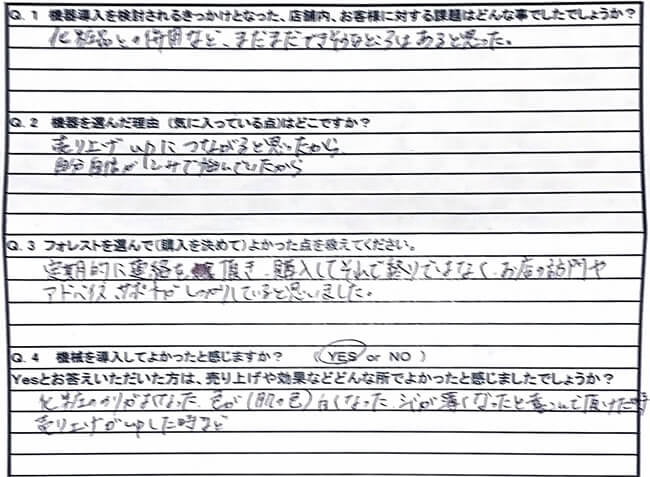 Q. 1 機器導入を検討されるきっかけとなった、店舗内、お客様に対する課題はどんな事でしたでしょうか?
化粧品との併用など、まだまだできそうなところはあると思った。
Q. 2 機器を選んだ理由 (気に入っている点)はどこですか?
売り上げupにつながると思ったから
自分自身がシミで悩んでいたから
Q. 3 フォレストを選んで(購入を決めて)よかった点を教えてください。
定期的に連絡を頂き、購入してそれで終りではなく、お店の訪問や
アドバイス、サポートがしっかりしていると思いました。
Q. 4 機械を導入してよかったと感じますか? ( YES or NO )
Yesとお答えいただいた方は、売り上げや効果などどんな所でよかったと感じましたでしょうか?
化粧のりがよくなった、色が(肌の色)白くなった、シミが薄くなったと喜んで頂けた時
売り上げがupした時など